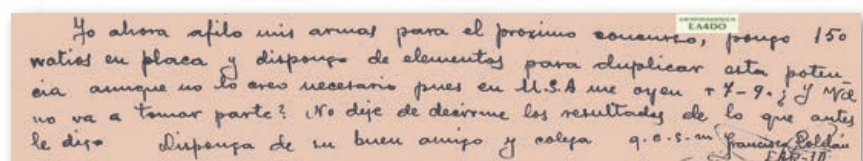 EA4DO
Yo ahora afilo mis armas para el proximo concurso, pongo 150
watios en placa y dispongo de elementos para duplicar esta poten-
cia aunque no lo creo necesario pues en U.S.A me oyen r 7-9. ¿ Y
no va a tomar parte? No deje de decirme los resultados de lo que antes
le digo Disponga de su buen amigo y colega q.e.s.m. Francisco Roldán
EAR-10